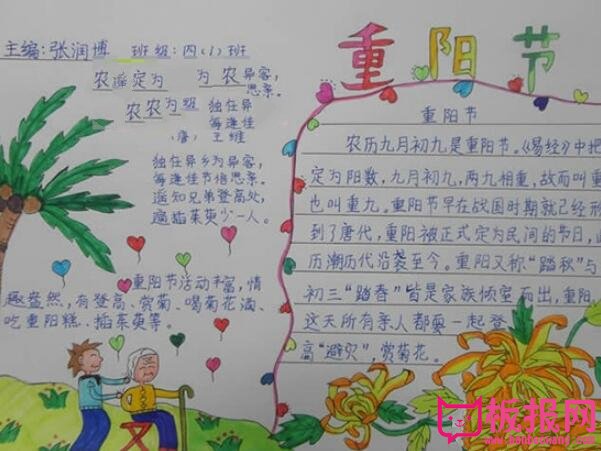 主编:张润博 班级:四(1)班
农遥定为 为农异客,
思亲。
农农为班 独在异
每逢佳
(唐) 王维
独在异乡为异客,
每逢佳节倍思亲。
遥知兄弟登高处,
遍插茱萸少一人。
重阳节活动丰富,情
趣盎然,有登高、赏菊、喝菊花酒、
吃重阳糕、插茱萸等。
重阳节
重阳节
农历九月初九是重阳节。《易经》中把
定为阳数,九月初九,两九相重,故而叫重
也叫重九。重阳节早在战国时期就已经形
到了唐代,重阳被正式定为民间的节日,此
历潮历代沿袭至今。重阳又称“踏秋”与
初三“踏春”皆是家族倾室而出,重阳
这天所有亲人都要一起登
高“避灾”,赏菊花。
板报网
www.banbaowang.com